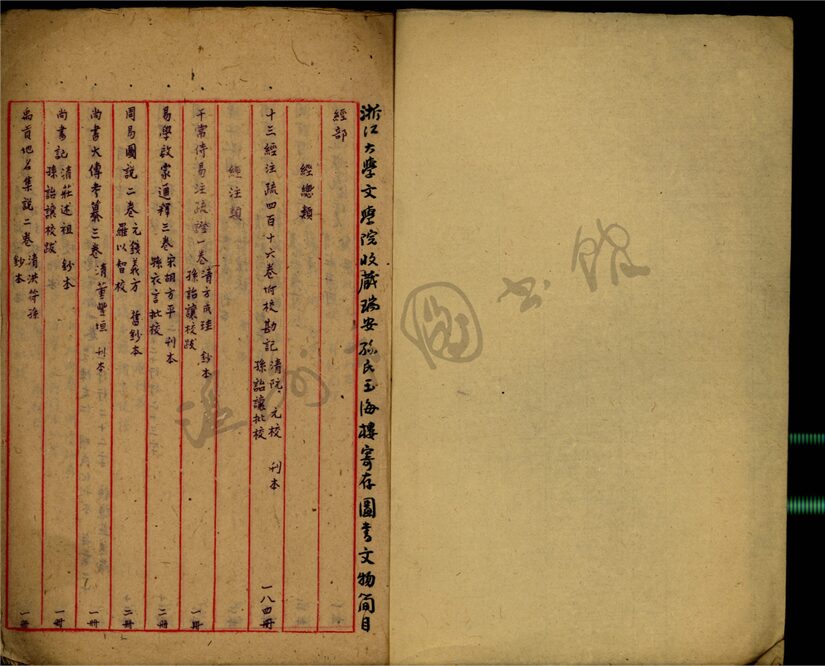 浙江大學文學院收藏瑞安孫氏玉海樓寄存圖書文物簡目
經部
經總類
十三經注疏四百十六卷附校勘記 清阮元校 孫詒讓批校 刊本 一八四冊
經注類
干常侍易注疏證一卷 清方成珪 孫詒讓校跋 鈔本 一冊
易學啟蒙通釋三卷 宋胡方平 孫衣言批校 刊本 二冊
周易圖說二卷 元錢義方 羅以智校 舊鈔本 二冊
尚書大傳考纂三卷 清董豐垣 刊本 一冊
尚書記 清莊述祖 孫詒讓校跋 鈔本 一冊
禹貢地名集說二卷 清洪符孫 鈔本 一冊
圖書館